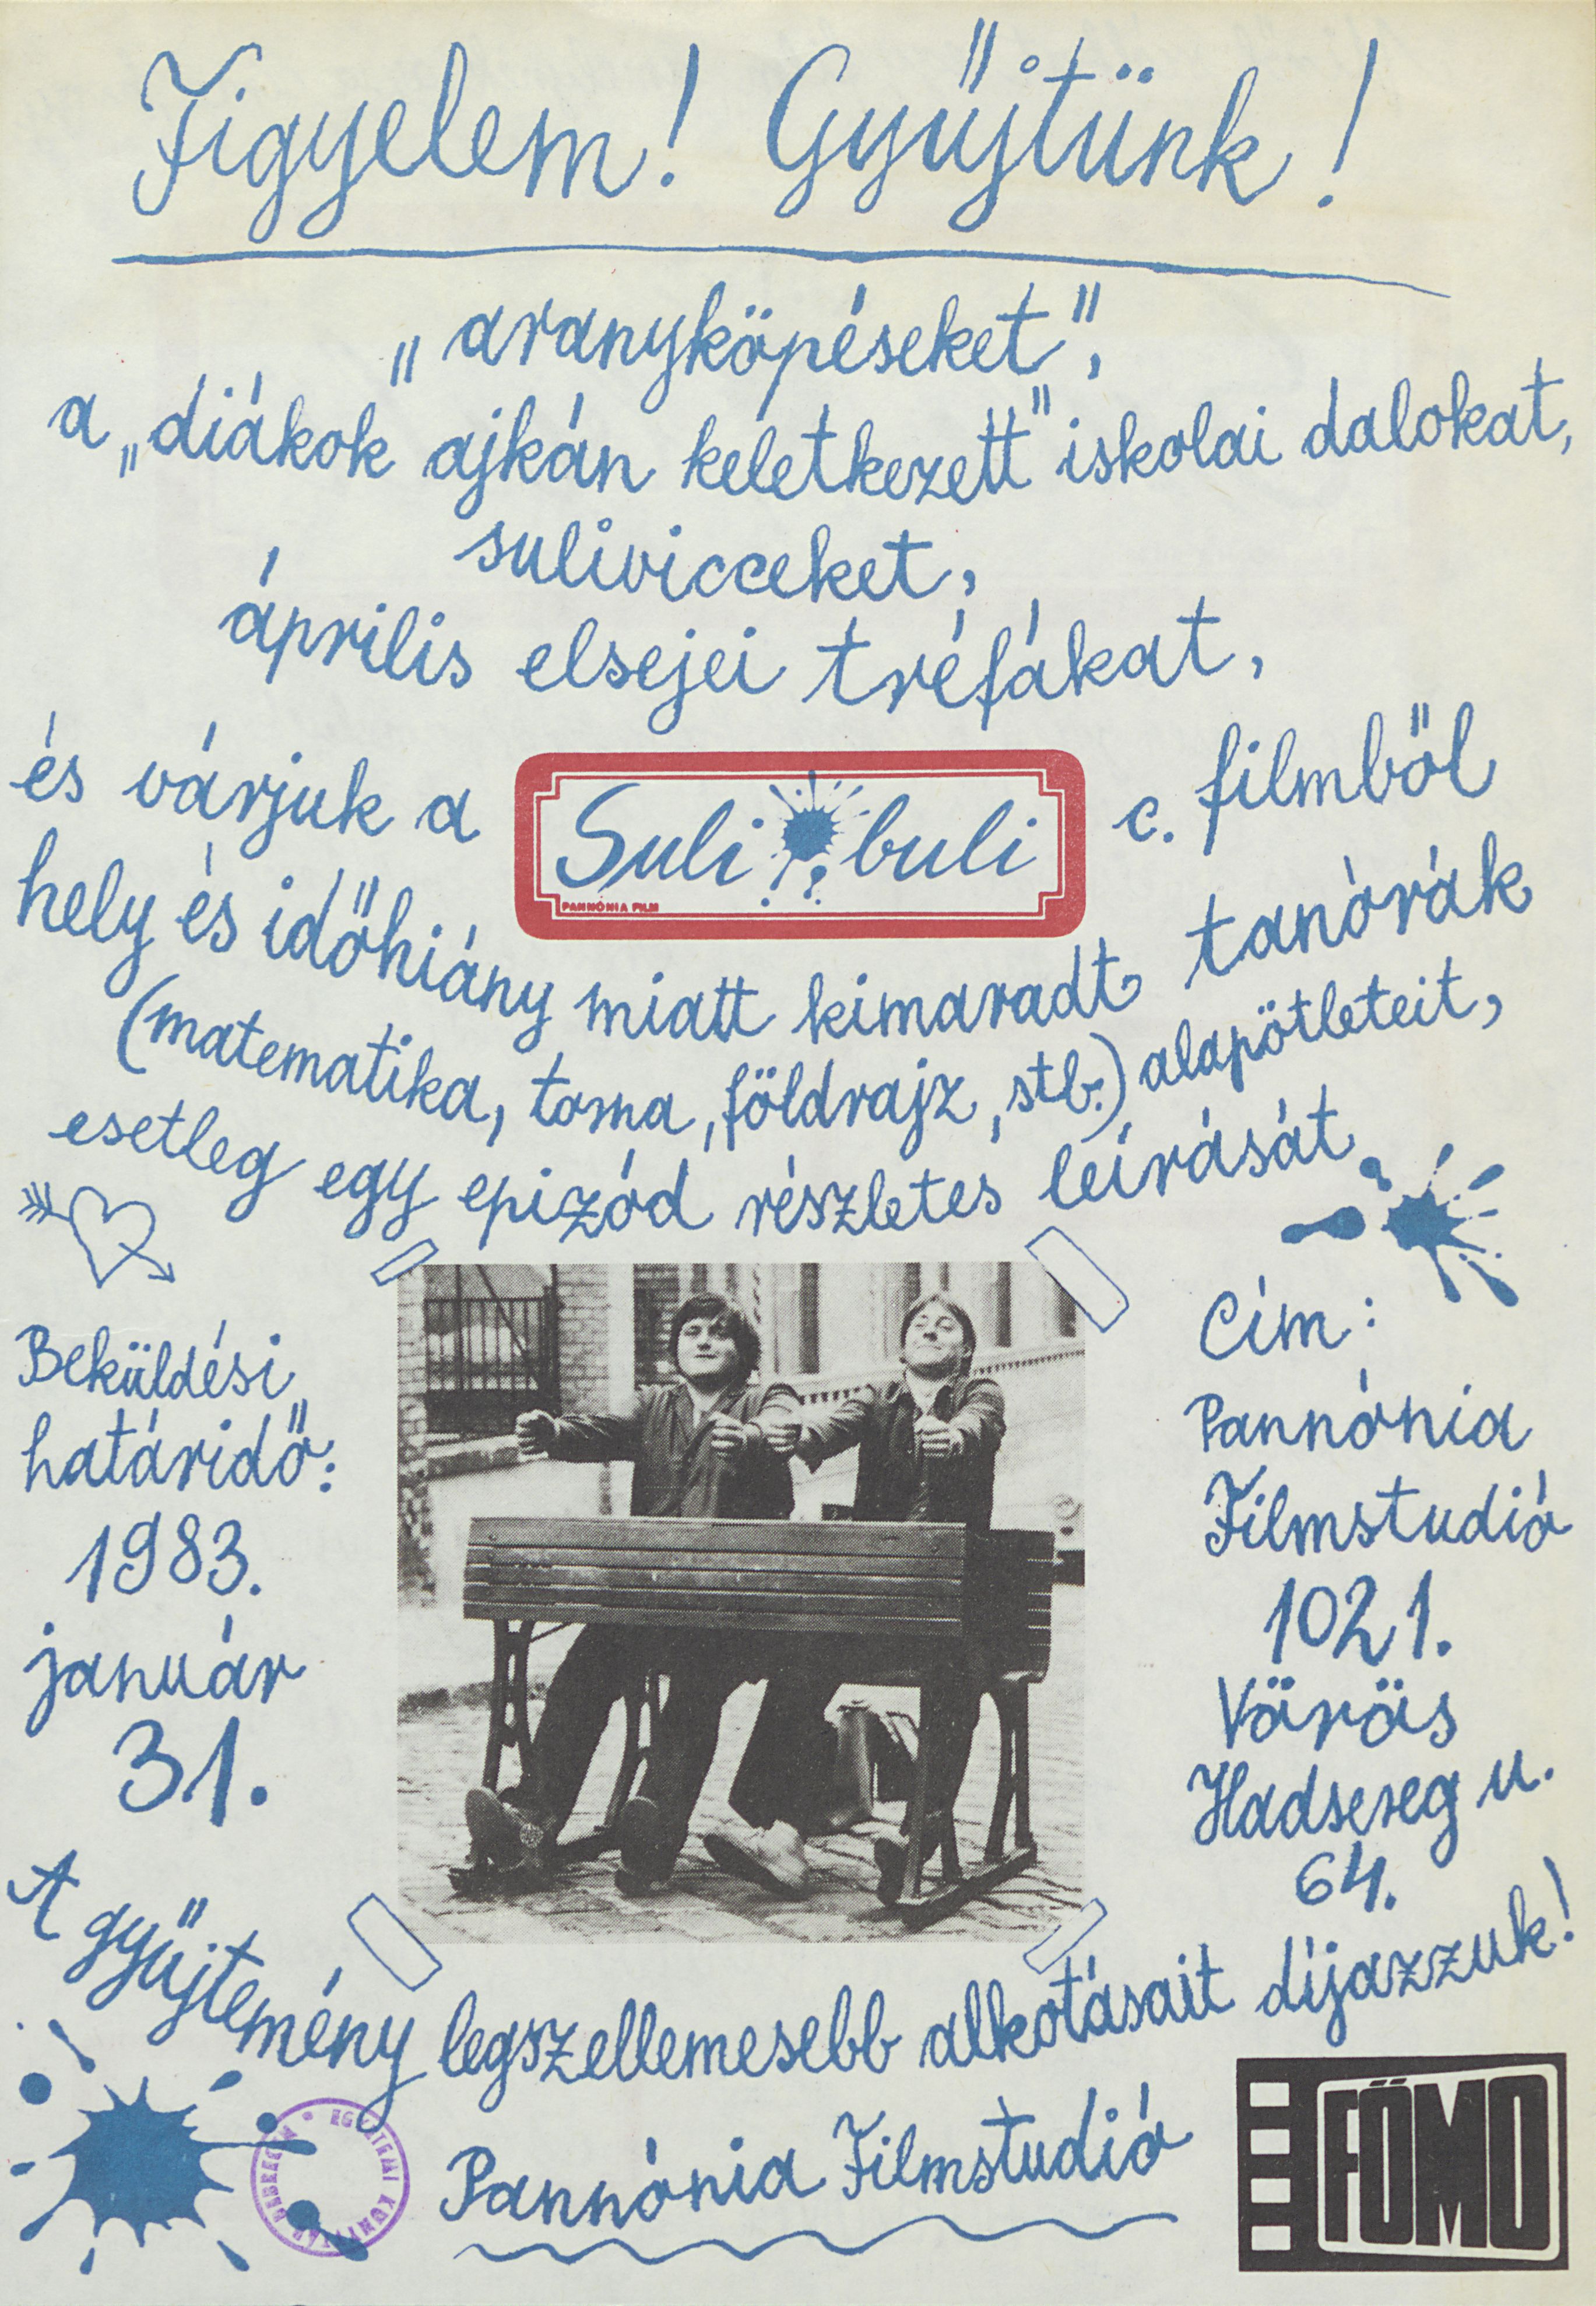 Figyelem! Gyűjtünk!
„aranyköpéseket",
a „diákok ajkán keletkezett" iskolai dalokat,
sulivicceket,
április elsejei tréfákat,
és várjuk a Suli buli c. filmből
PANNÓNIA FILM
hely és időhiány miatt kimaradt tanórák
(matematika, torna, földrajz, stb.) alapötleteit,
esetleg egy epizód részletes leírását
Beküldési
határidő:
1983.
január
31.
Cím:
Pannónia
Filmstudió
1021.
Vörös
Hadsereg u.
64.
A gyűjtemény legszellemesebb alkotásait díjazzuk!
Pannónia Filmstudió
FŐMO